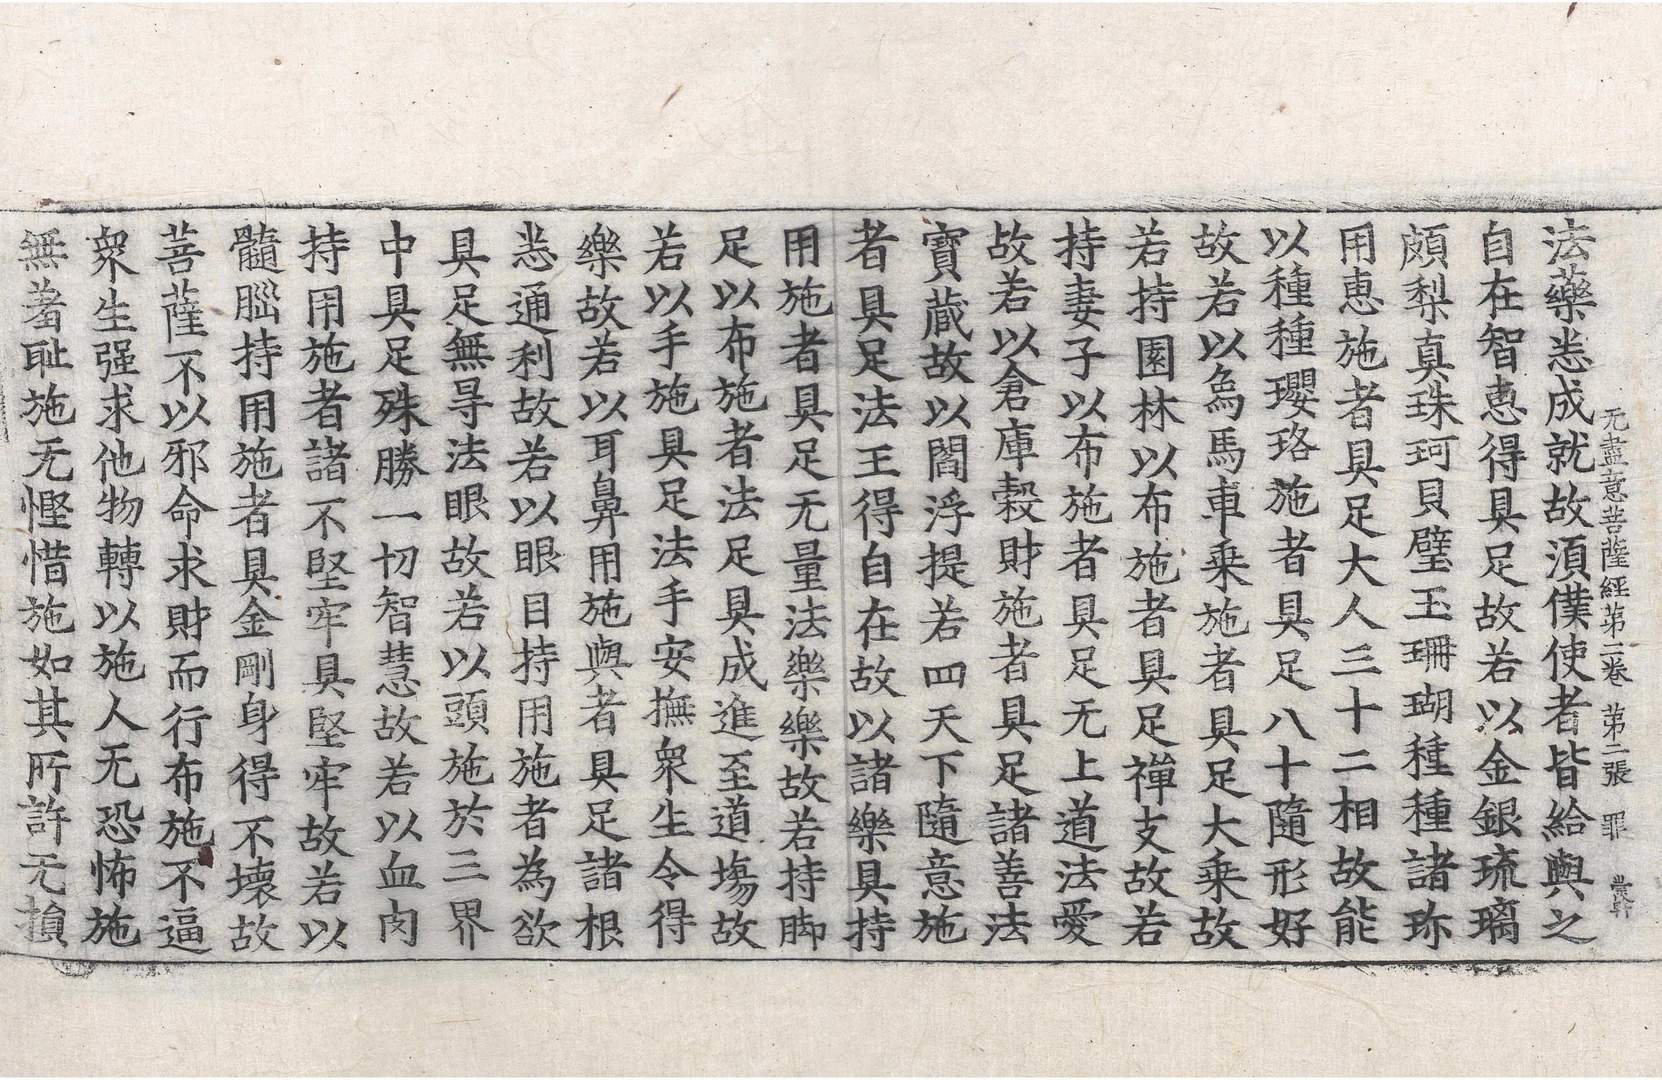 无盡意菩薩經第二卷 第二張 罪
法藥悉成就故須僕使者皆給與之
自在智惠得具足故若以金銀琉璃
頗梨真珠珂貝璧玉珊瑚種種諸珎
用惠施者具足大人三十二相故能
以種種瓔珞施者具足八十隨形好
故若以烏馬車乗施者具足大乗故
若持園林以布施者具足禪支故若
持妻子以布施者具足无上道法愛
故若以倉庫穀財施者具足諸善法
寳蔵故以閻浮提若四天下隨意施
者具足法王得自在故以諸樂具持
用施者具足无量法樂樂故若持脚
足以布施者法足具成進至道塲故
若以手施具足法手安撫衆生令得
樂故若以耳鼻用施與者具足諸根
悉通利故若以眼目持用施者為欲
具足無㝵法眼故若以頭施於三界
中具足殊勝一切智慧故若以血肉
持用施者諸不堅牢具堅牢故若以
髓𦛁持用施者具金剛身得不壊故
菩薩不以邪命求財而行布施不逼
衆生强求他物轉以施人无恐怖施
無羞耻施无慳惜施如其所許无損